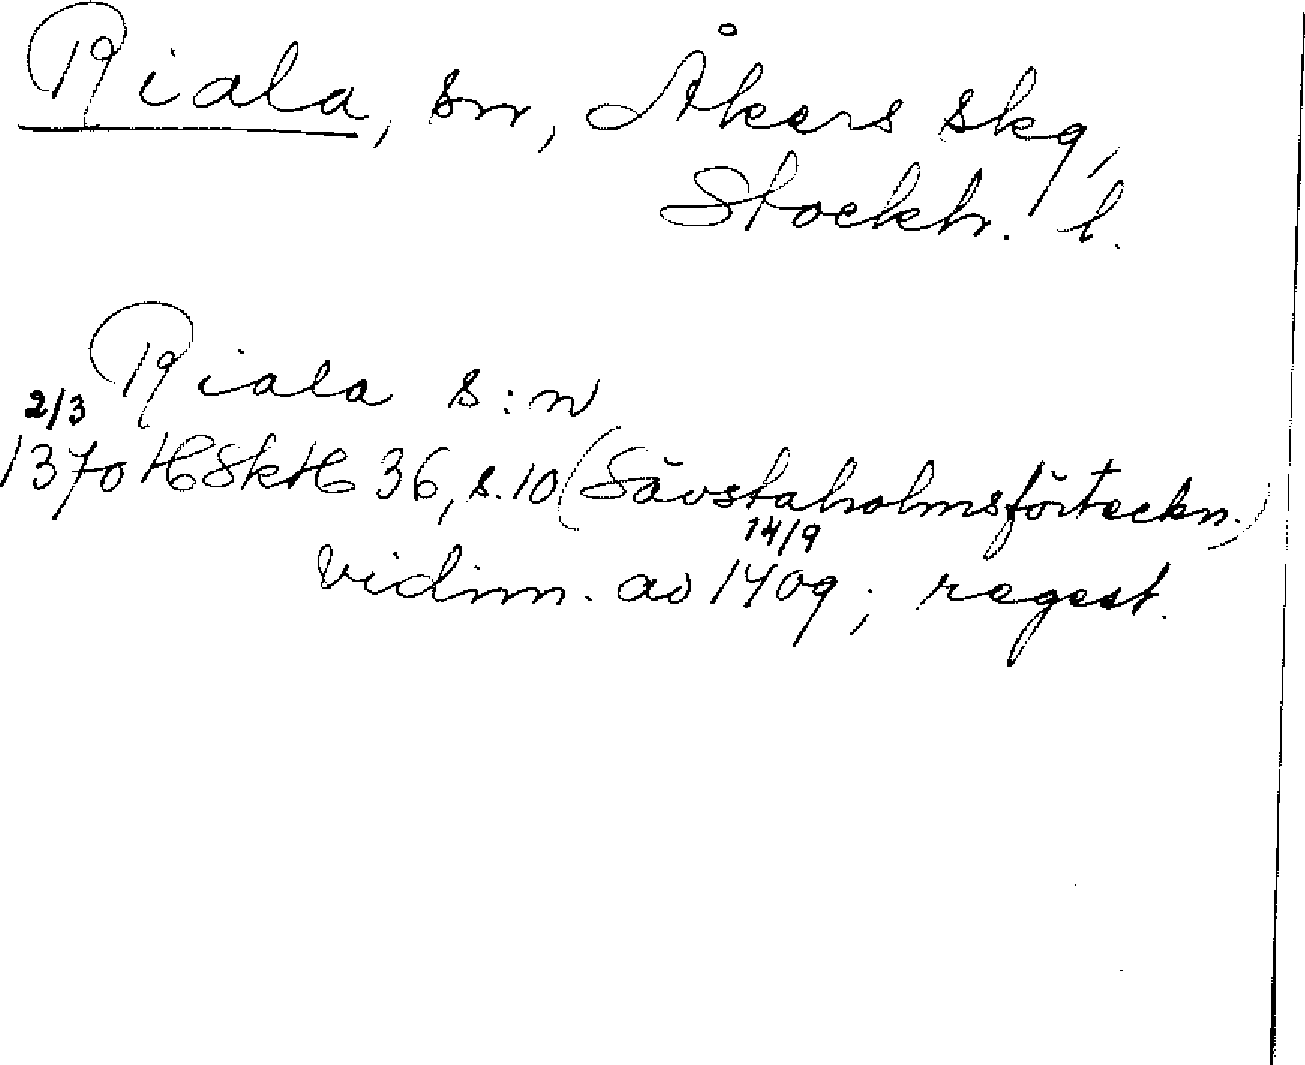 Riala, sn, Åkers skg,
Stockh. l.
Riala s:n
2/3
1370 HSkH 36, s. 10 (Sävstaholmsförteckn.)
14/9
vidim. av 1409; regest.